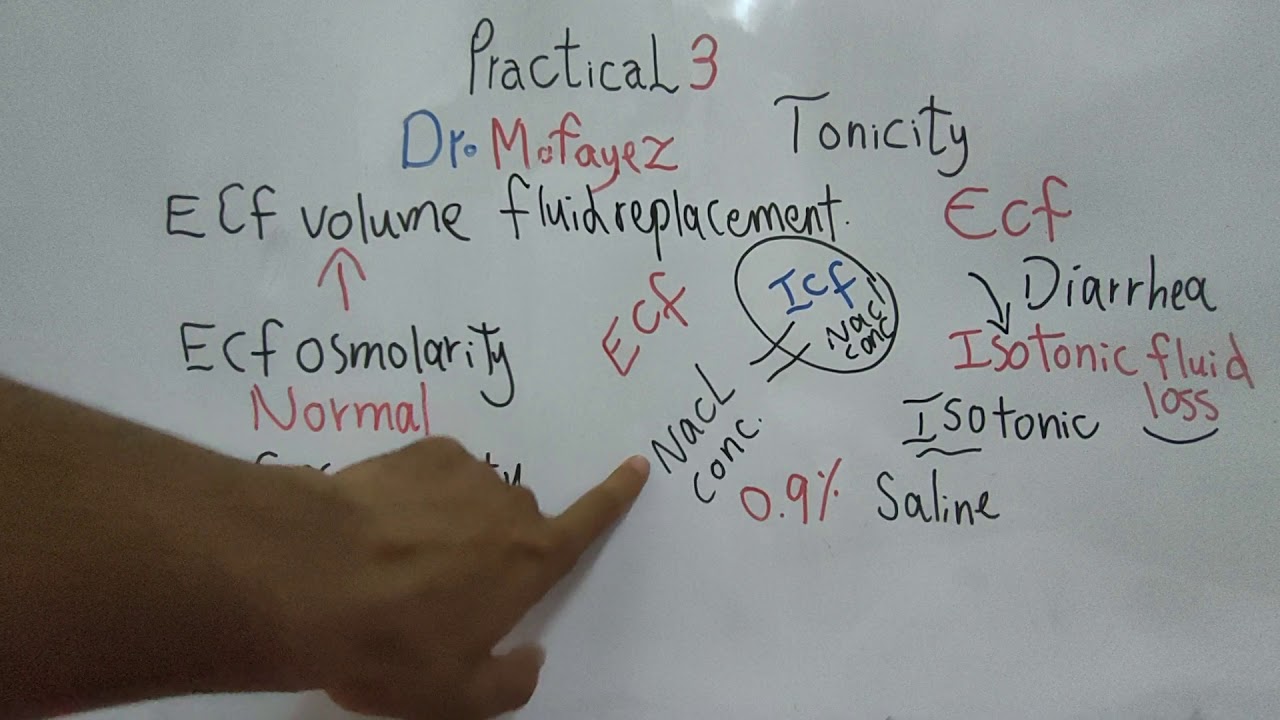 Practical 3
Dr. Mofayez
Tonicity
ECf volume fluid replacement.
↑
ECf osmolarity
Normal
Ecf
Icf
Nacl
conc
=
Nacl
conc.
0.9% Saline
Ecf
Diarrhea
Isotonic fluid
loss
Isotonic